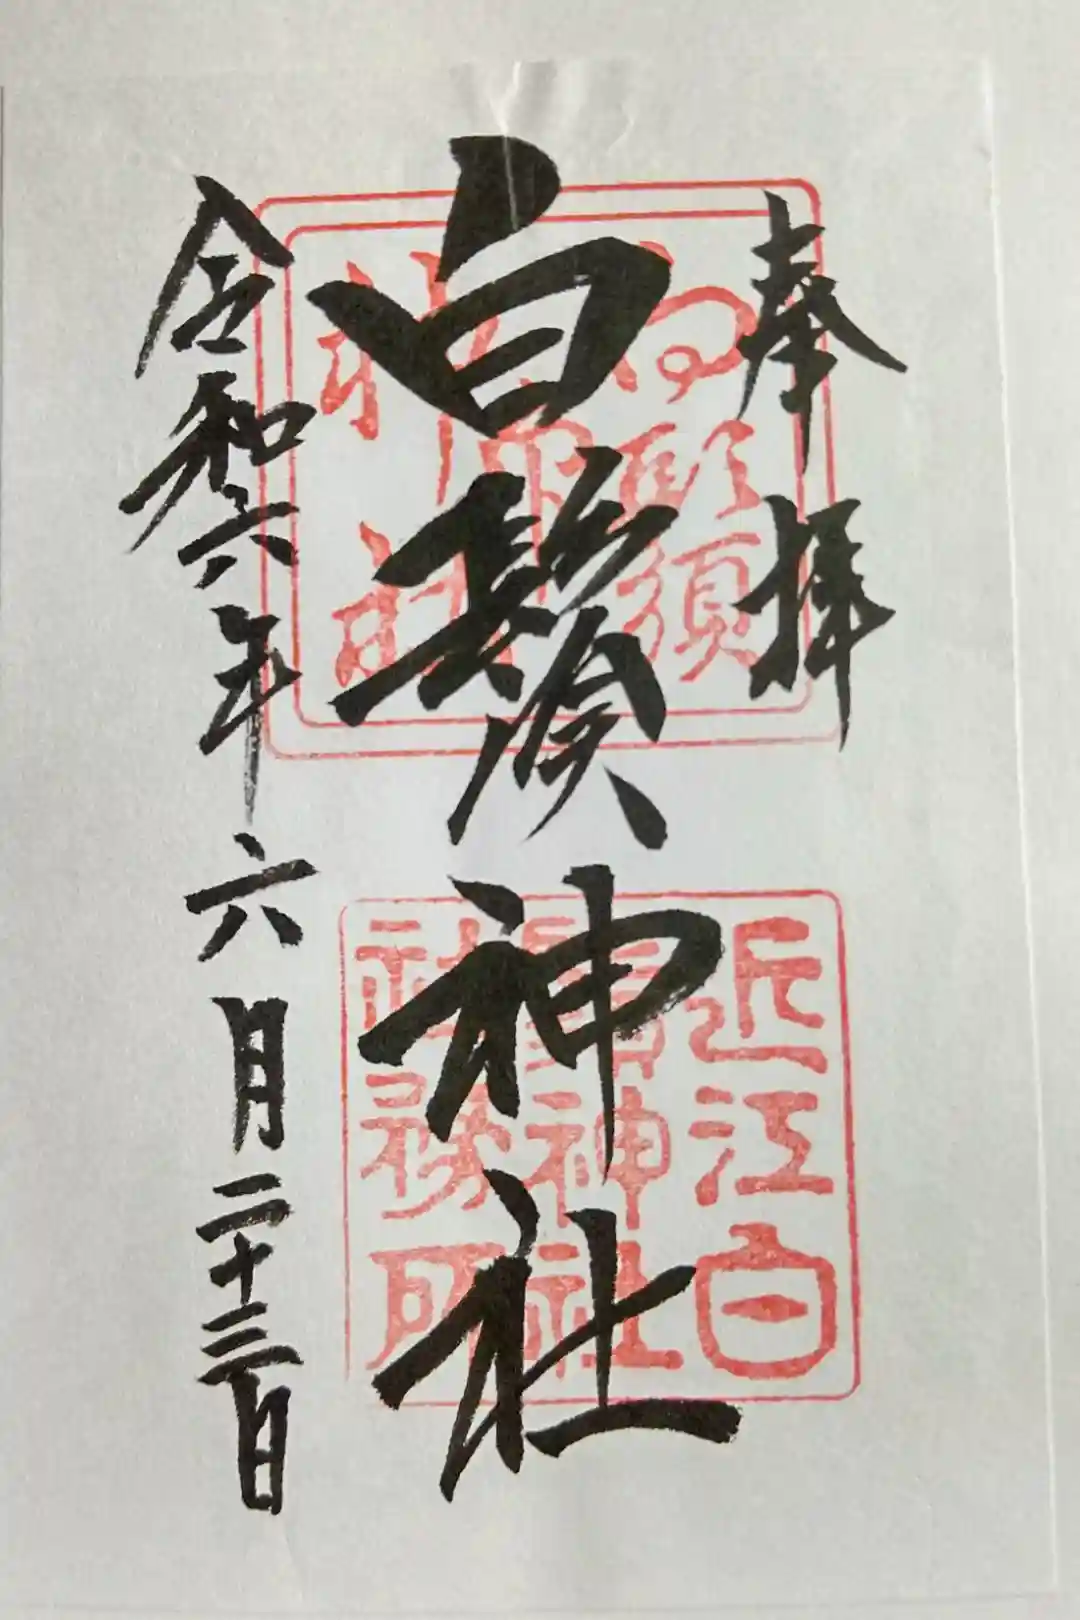 奉拝
白鬚神社
令和六年六月二十三日
白鬚神社
近江白
鬚神社
社務所